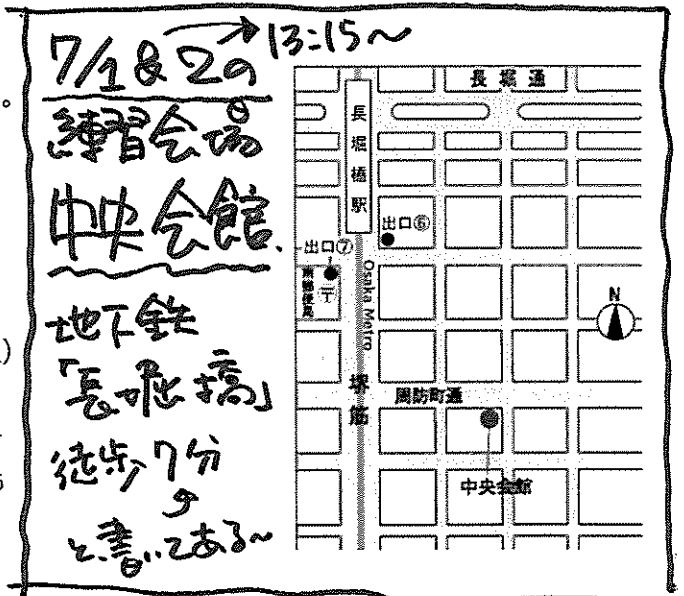 7/1&2の 13:15〜
練習会場
中央会館.
地下鉄
「長堀橋」
徒歩7分
と、書いてある〜
長堀通
長堀橋駅
出口⑥
出口⑦
〒
南郵便局
Osaka Metro
堺筋
N
周防町通
中央会館